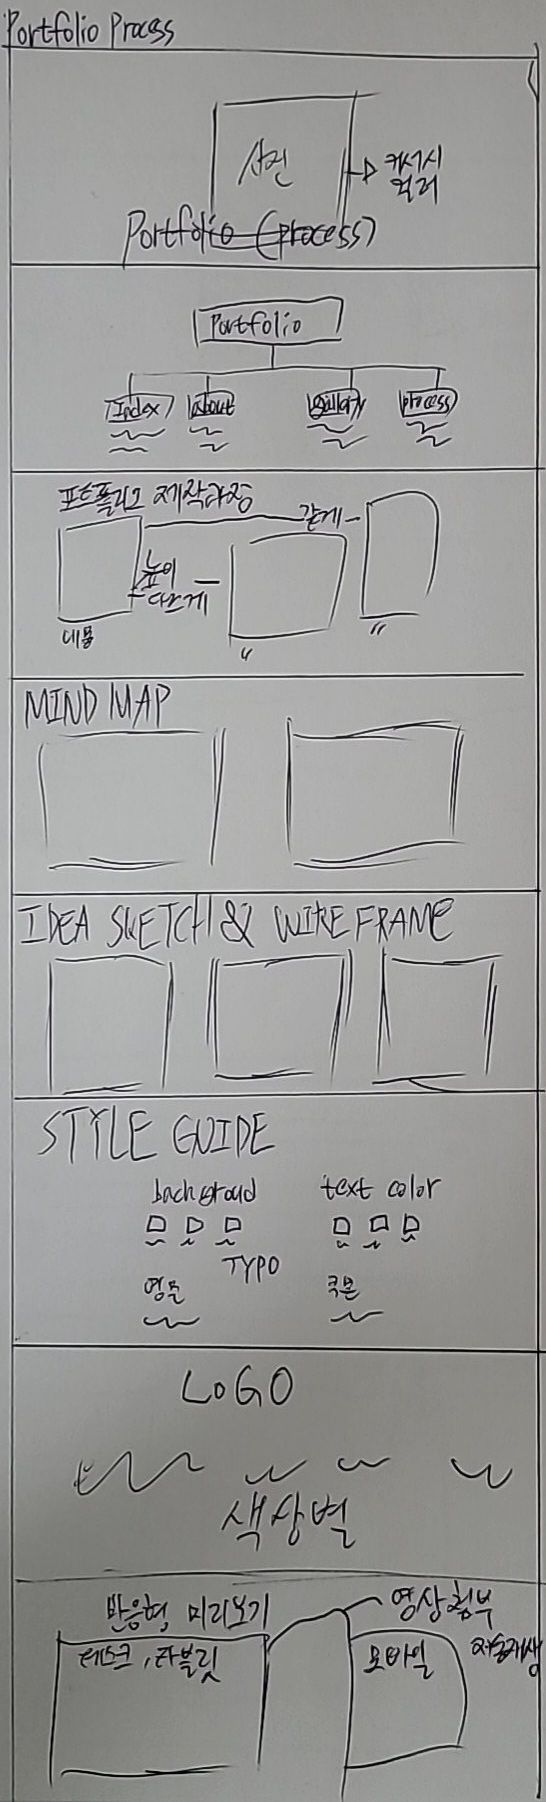 Portfolio Process
사진
커서시
컬러
Portfolio (process)
Portfolio
Index
about
gallery
process
포트폴리오 제작과정
같게
높이
다르게
내용
"
"
MIND MAP
IDEA SKETCH & WIREFRAME
STYLE GUIDE
backgroud
text color
TYPO
영문
국문
LOGO
색상별
반응형 미리보기
영상첨부
데스크, 타블릿
모바일
자동재생